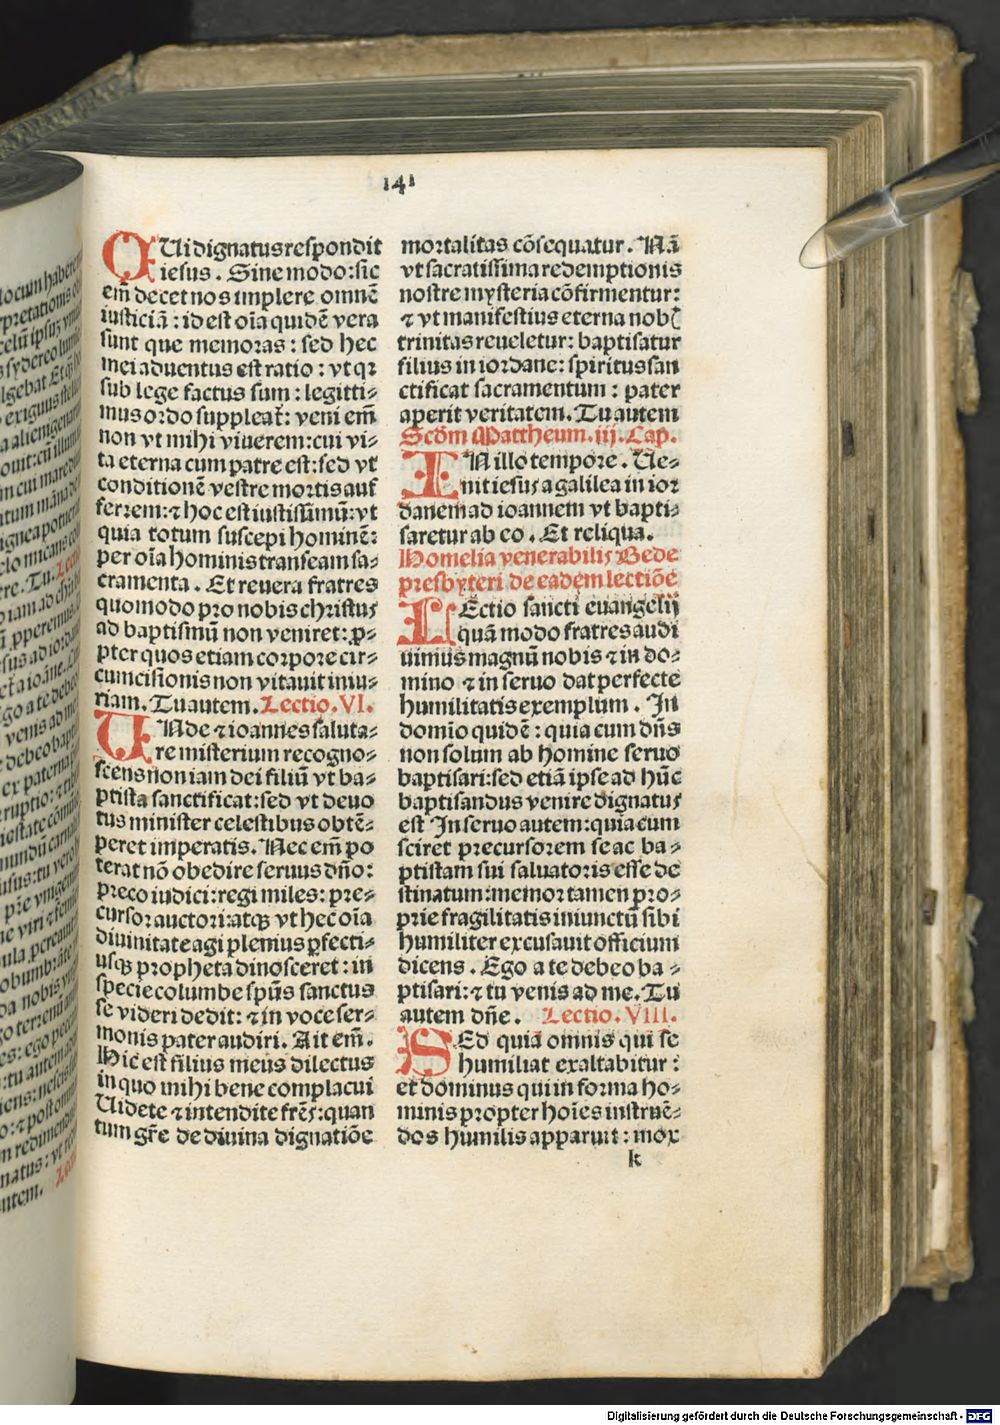 141
QUi dignatus respondit
iesus . Sine modo : sic
em̄ decet nos implere omnē
iusticiā : id est oīa quidē vera
sunt que memoras : sed hec
mei aduentus est ratio : vt qꝛ
sub lege factus sum : legitti⸗
mus ordo suppleat̄ : veni em̄
non vt mihi viuerem : cui vi⸗
ta eterna cum patre est : sed vt
conditionē vestre mortis auf
ferrem : ⁊ hoc est iustissimū : vt
quia totum suscepi hominē :
per oīa hominis transeam sa⸗
cramenta . Et reuera fratres
quomodo pro nobis christus
ad baptismū non veniret : ꝓ⸗
pter quos etiam corpore cir⸗
cumcisionis non vitauit iniu⸗
riam . Tu autem . Lectio . VI .
UNde ⁊ ioannes saluta⸗
re misterium recogno⸗
scens non iam dei filiū vt ba⸗
ptista sanctificat : sed vt deuo
tus minister celestibus obtē⸗
peret imperatis . Nec em̄ po
terat nō obedire seruus dn̄o :
preco iudici : regi miles : pre⸗
cursor auctori : atqꝫ vt hec oīa
diuinitate agi plenius ꝑfecti⸗
usqꝫ propheta dinosceret : in
specie columbe spūs sanctus
se videri dedit : ⁊ in voce ser⸗
monis pater audiri . Ait em̄ .
Hic est filius meus dilectus
in quo mihi bene complacui
Uidete ⁊ intendite fr̄es : quan
tum gr̄e de diuina dignatiōe
mortalitas cōsequatur . Nā
vt sacratissima redemptionis
nostre mysteria cōfirmentur :
⁊ vt manifestius eterna nob̄
trinitas reueletur : baptisatur
filius in iordane : spiritus san
ctificat sacramentum : pater
aperit veritatem . Tu autem
Scd̄m Mattheum . iij . Cap .
IN illo tempore . Ue⸗
nit iesus a galilea in ior
danem ad ioannem vt bapti⸗
saretur ab eo . Et reliqua .
Homelia venerabilis Bede
presbyteri de eadem lectiōe
LEctio sancti euangelij
quā modo fratres audi
uimus magnū nobis ⁊ in do⸗
mino ⁊ in seruo dat perfecte
humilitatis exemplum . In
domīo quidē : quia cum dn̄s
non solum ab homine seruo
baptisari : sed etiā ipse ad hūc
baptisandus venire dignatus
est In seruo autem : quia cum
sciret precursorem se ac ba⸗
ptistam sui saluatoris esse de
stinatum : memor tamen pro⸗
prie fragilitatis iniunctū sibi
humiliter excusauit officium
dicens . Ego a te debeo ba⸗
ptisari : ⁊ tu venis ad me . Tu
autem dn̄e . Lectio . VIII .
SEd quiā omnis qui se
humiliat exaltabitur :
et dominus qui in forma ho⸗
minis propter hoīes instruē⸗
dos humilis apparuit : mox
k
Digitalisierung gefördert durch die Deutsche Forschungsgemeinschaft - DFG